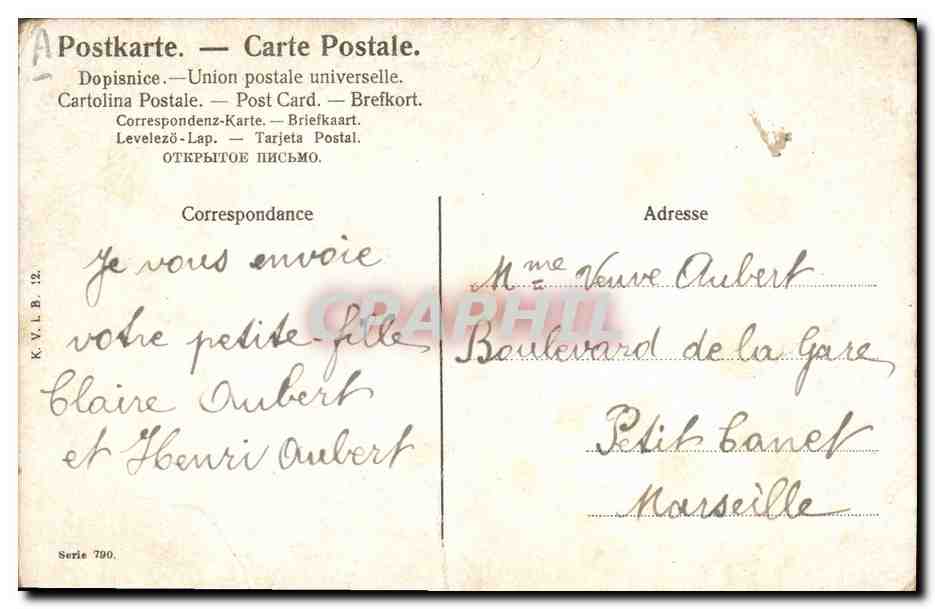 A
Postkarte. — Carte Postale.
Dopisnice.—Union postale universelle.
Cartolina Postale. — Post Card. — Brefkort.
Correspondenz-Karte. — Briefkaart.
Levelező-Lap. — Tarjeta Postal.
ОТКРЫТОЕ ПИСЬМО.
Correspondance
Je vous envoie
votre petite fille
Claire Aubert
et Henri Aubert
K. V. i. B. 12.
Serie 790.
Adresse
Mme Veuve Aubert
Boulevard de la Gare
Petit Canet
Marseille
CPAPHIL